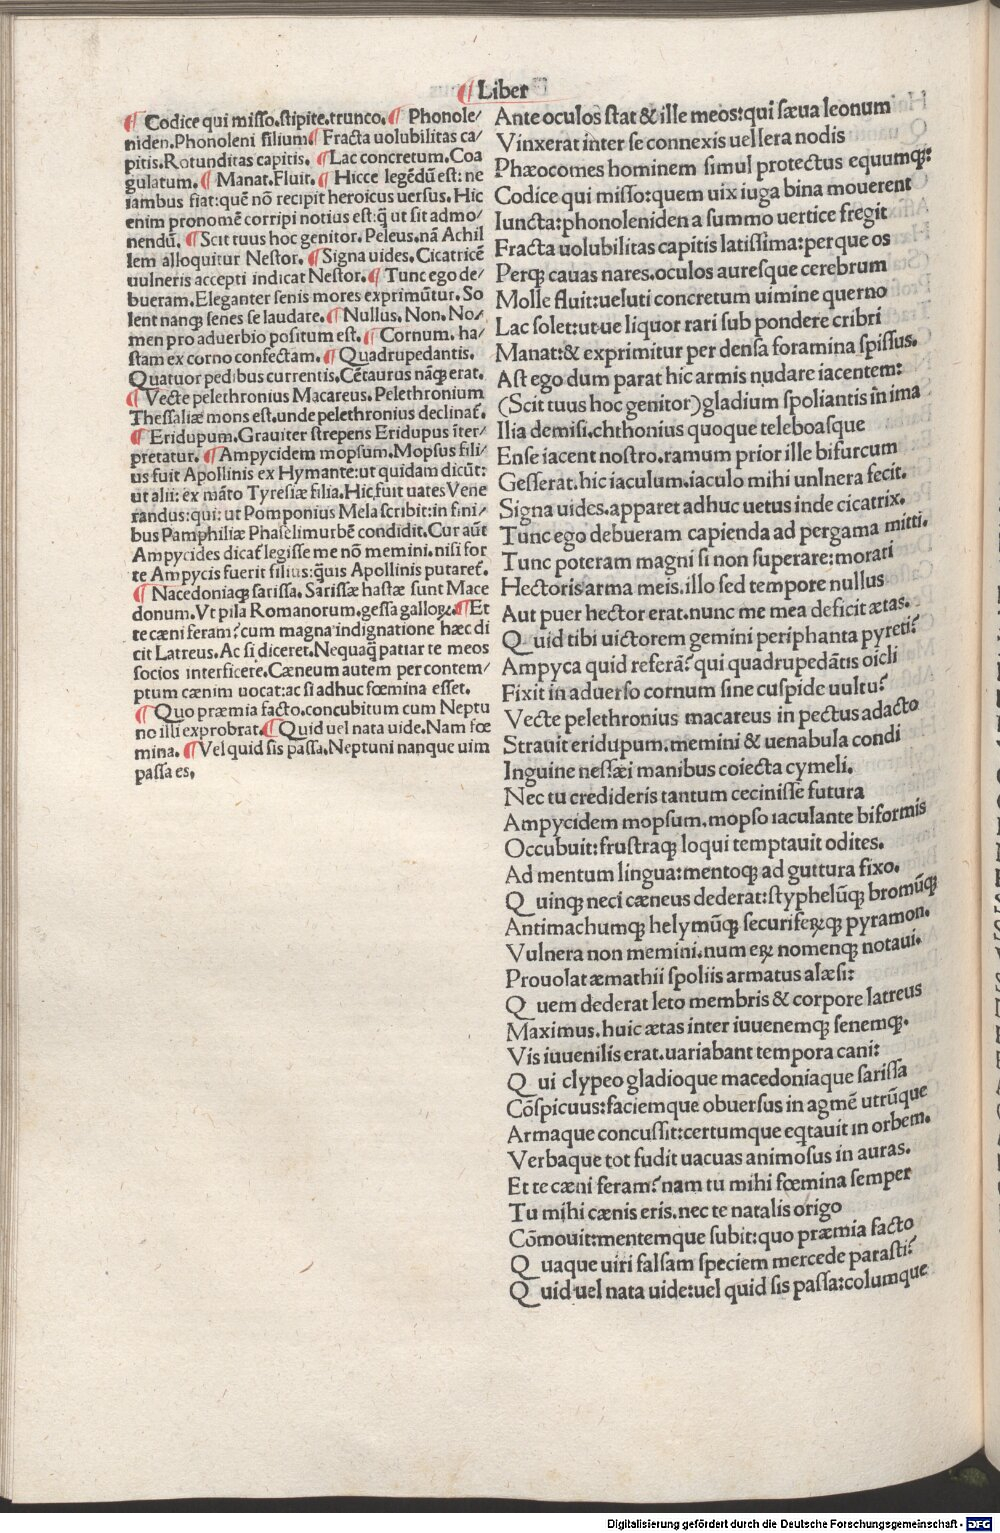 ¶ Liber
¶ Codice qui misso.stipite.trunco. ¶ Phonole/
niden.Phonoleni filium ¶ Fracta uolubilitas ca/
pitis.Rotunditas capitis. ¶ Lac concretum.Coa
gulatum. ¶ Manat.Fluit. ¶ Hicce legēdū est: ne
iambus fiat:quē nō recipit heroicus uersus. Hic
enim pronomē corripi notius est:q̄ ut sit admo/
nendū. ¶ Scit tuus hoc genitor. Peleus.nā Achil
lem alloquitur Nestor. ¶ Signa uides. Cicatricē
uulneris accepti indicat Nestor. ¶ Tunc ego de/
bueram.Eleganter senis mores exprimūtur. So
lent nanꝗ senes se laudare. ¶ Nullus. Non. No/
men pro aduerbio positum est. ¶ Cornum. ha/
stam ex corno confectam. ¶ Quadrupedantis.
Quatuor pedibus currentis.Cētaurus nāꝗ erat.
¶ Vecte pelethronius Macareus. Pelethronium
Thessaliæ mons est.unde pelethronius declinat᷑.
¶ Eridupum.Grauiter strepens Eridupus īter/
pretatur. ¶ Ampycidem mopsum.Mopsus fili/
us fuit Apollinis ex Hymante:ut quidam dicūt:
ut alii: ex māto Tyresiæ filia.Hic fuit uates Vene
randus:qui: ut Pomponius Mela scribit:in fini/
bus Pamphiliæ Phaselimurbē condidit.Cur aūt
Ampycides dicat᷑ legisse me nō memini.nisi for
te Ampycis fuerit filius:q̄uis Apollinis putaret᷑.
¶ Nacedoniaꝗ sarissa. Sarissæ hastæ sunt Mace
donum.Vt pila Romanorum.gessa galloꝝ. ¶ Et
te cæni feram?cum magna indignatione hæc di
cit Latreus. Ac si diceret.Nequaꝗ̄ patiar te meos
socios interficere.Cæneum autem per contem/
ptum cænim uocat:ac si adhuc fœmina esset.
¶ Quo præmia facto.concubitum cum Neptu
no illi exprobrat. ¶ Quid uel nata uide.Nam fœ
mina. ¶ Vel quid sis passa.Neptuni nanque uim
passa es.
Ante oculos stat & ille meos:qui sæua leonum
Vinxerat inter se connexis uellera nodis
Phæocomes hominem simul protectus equumꝗ:
Codice qui misso:quem uix iuga bina mouerent
Iuncta:phonoleniden a summo uertice fregit
Fracta uolubilitas capitis latissima:perque os
Perꝗ cauas nares.oculos auresque cerebrum
Molle fluit:ueluti concretum uimine querno
Lac solet:ut·ue liquor rari sub pondere cribri
Manat:& exprimitur per densa foramina spissus.
Ast ego dum parat hic armis nudare iacentem:
(Scit tuus hoc genitor)gladium spoliantis in ima
Ilia demisi.chthonius quoque teleboasque
Ense iacent nostro.ramum prior ille bifurcum
Gesserat.hic iaculum.iaculo mihi unlnera fecit.
Signa uides.apparet adhuc uetus inde cicatrix.
Tunc ego debueram capienda ad pergama mitti.
Tunc poteram magni si non superare:morari
Hectoris arma meis.illo sed tempore nullus
Aut puer hector erat.nunc me mea deficit ætas.
Quid tibi uictorem gemini periphanta pyreti?
Ampyca quid referā?qui quadrupedātis oicli
Fixit in aduerso cornum sine cuspide uultu?
Vecte pelethronius macareus in pectus adacto
Strauit eridupum.memini & uenabula condi
Inguine nessæi manibus coiecta cymeli.
Nec tu credideris tantum cecinisse futura
Ampycidem mopsum.mopso iaculante biformis
Occubuit:frustraꝗ loqui temptauit odites.
Ad mentum lingua:mentoꝗ ad guttura fixo.
Quinꝗ neci cæneus dederat:styphelūꝗ bromūꝗ
Antimachumꝗ helymūꝗ securiferꝝꝗ pyramon.
Vulnera non memini.num eꝝ nomenꝗ notaui.
Prouolat æmathii spoliis armatus alæsi:
Quem dederat leto membris & corpore latreus
Maximus.huic ætas inter iuuenemꝗ senemꝗ.
Vis iuuenilis erat.uariabant tempora cani:
Qui clypeo gladioque macedoniaque sarissa
Cōspicuus:faciemque obuersus in agmē utrūque
Armaque concussit:certumque eqtauit in orbem.
Verbaque tot fudit uacuas animosus in auras.
Et te cæni feram?nam tu mihi fœmina semper
Tu mihi cænis eris.nec te natalis origo
Cōmouit:mentemque subit:quo præmia facto
Quaque uiri falsam speciem mercede parasti?
Quid uel nata uide:uel quid sis passa:columque
Digitalisierung gefördert durch die Deutsche Forschungsgemeinschaft - DFG